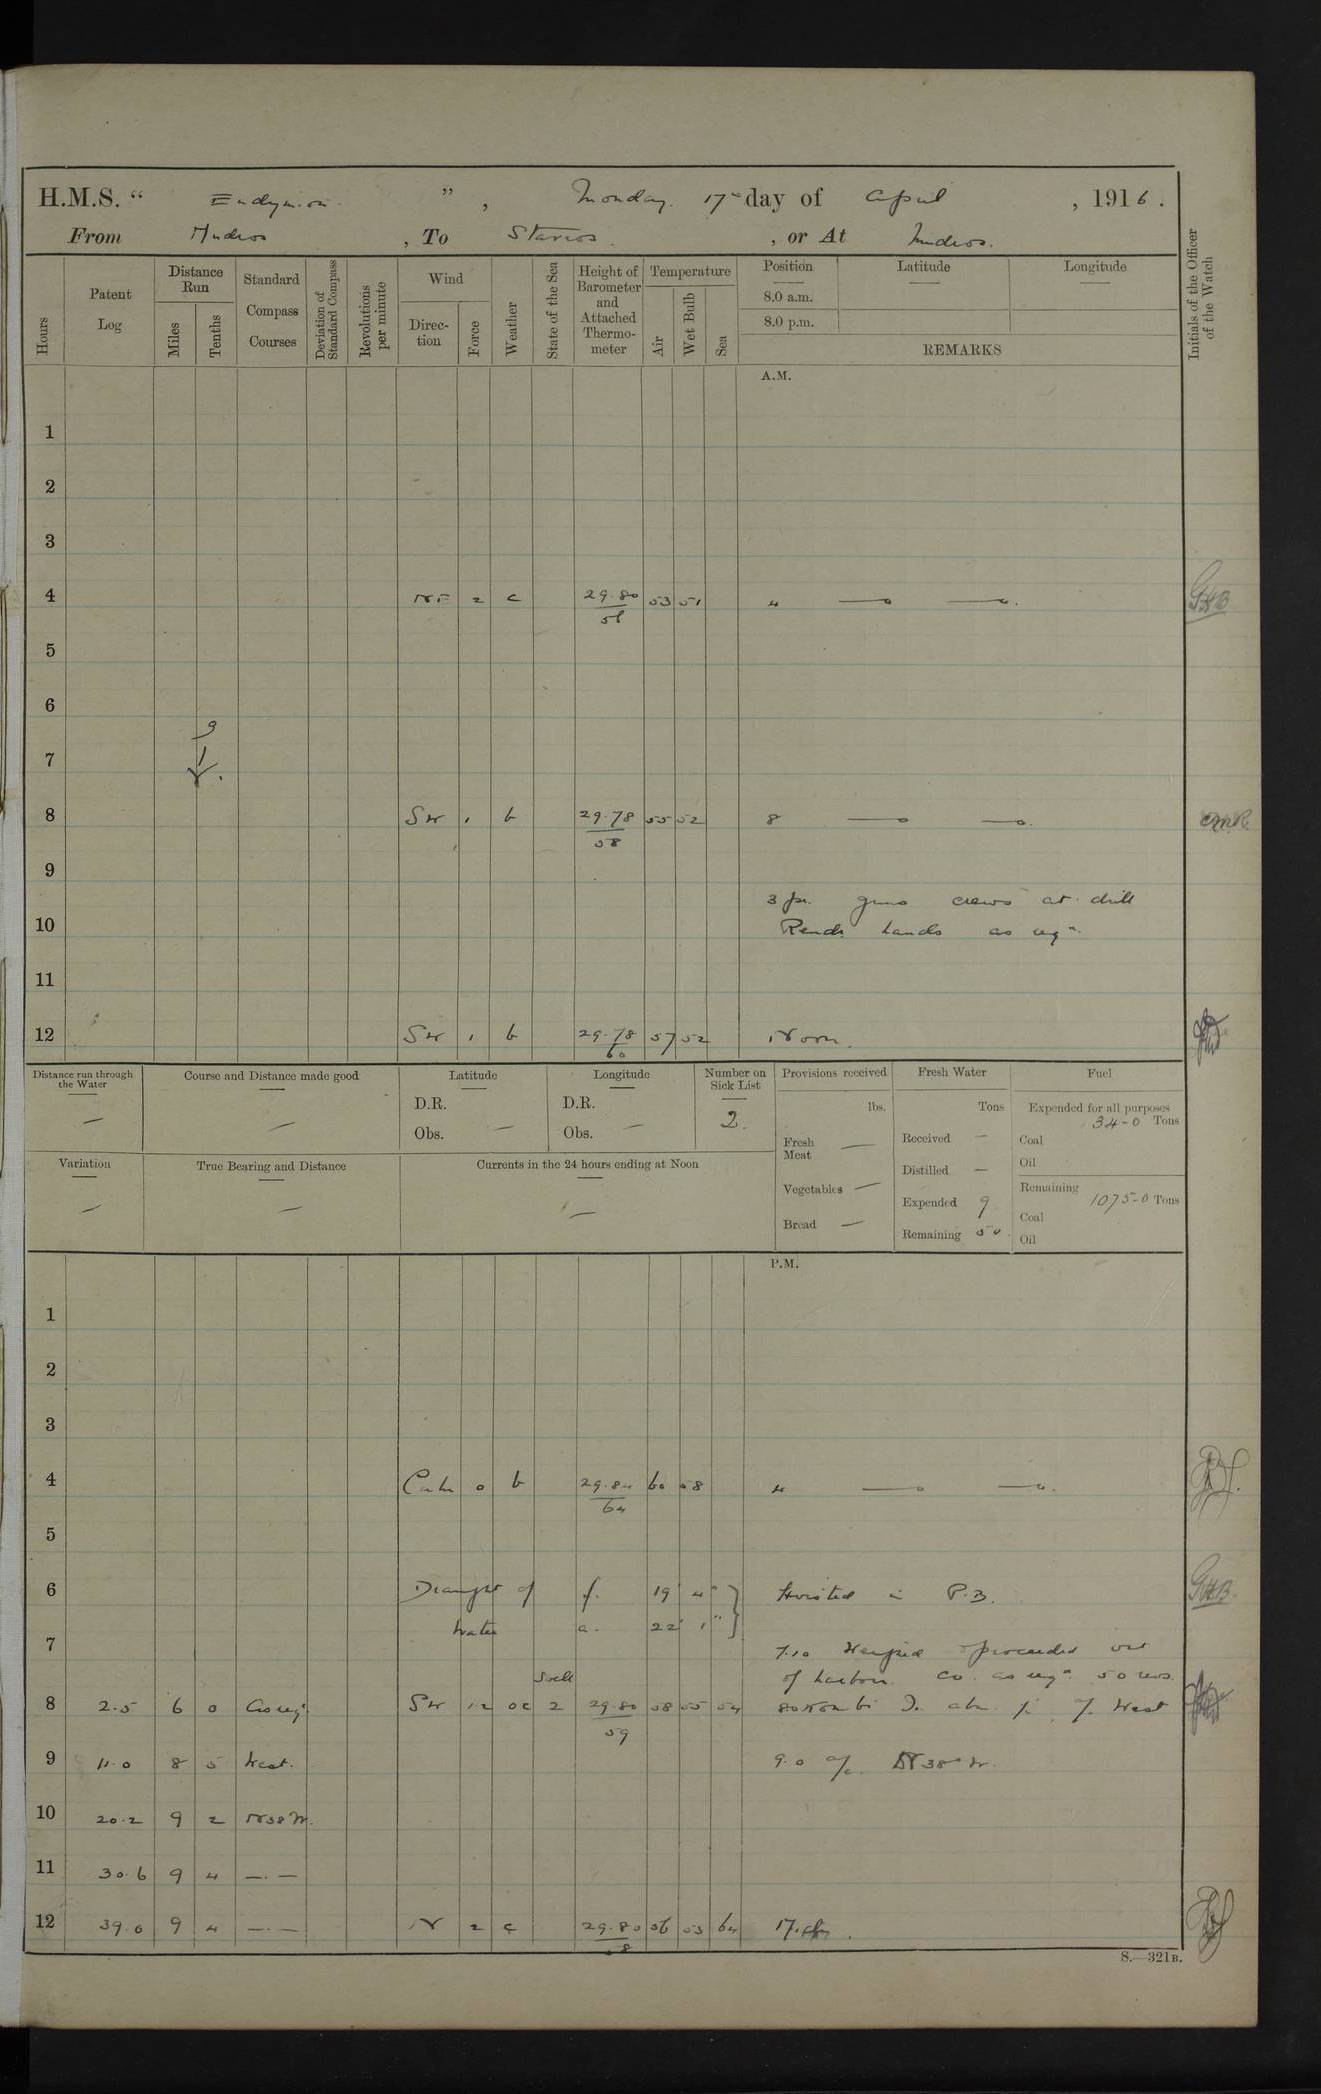 H.M.S. " Endymion ", Monday 17th day of April, 1916.
From Mudros, To Stavros, or At Mudros.
Hours
Patent Log
Distance Run
Miles
Tenths
Standard Compass Courses
Deviation of Standard Compass
Revolutions per minute
Wind
Direction
Force
Weather
State of the Sea
Height of Barometer and Attached Thermometer
Temperature
Air
Wet Bulb
Sea
Position
8.0 a.m.
8.0 p.m.
Latitude
Longitude
REMARKS
Initials of the Officer of the Watch
A.M.
1
2
3
4 NE 2 c 29.80 53 51 4 GHB
5
6
7
8 SW 1 b 29.78 55 52 8
58
9
3 pr. guns crews at drill
10 hands as reqd.
11
12 SW 1 b 29.78 57 52 Noon.
60
Distance run through the Water
Course and Distance made good
Latitude
D.R.
Obs. —
Longitude
D.R.
Obs. —
Number on Sick List
2.
Variation
True Bearing and Distance
Currents in the 24 hours ending at Noon
Provisions received
lbs.
Fresh Meat —
Vegetables —
Bread —
Fresh Water
Tons
Received —
Distilled —
Expended 9
Remaining 50
Fuel
Expended for all purposes
34-0 Tons
Coal
Oil
Remaining
1075-0 Tons
Coal
Oil
P.M.
1
2
3
4 Calm 0 b 29.84 60 58 4
64
5
6 Draught of f. 19' 4" Hoisted in P.B. GHB.
water a. 22' 1"
7
7.10 Weighed & proceeded out
of harbour. Co. as reqd. 50 revs.
Swell
8 2.5 6 0 As reqd. SW 1.2 oc 2 29.80 58 55 54
59
9 11.0 8 5 West. 9.0 a/c. N38°W.
10 20.2 9 2 N38W.
11 30.6 9 4 — . —
12 39.0 9 4 — . — N 2 c 29.80 56 53 64
58
S.—321B.